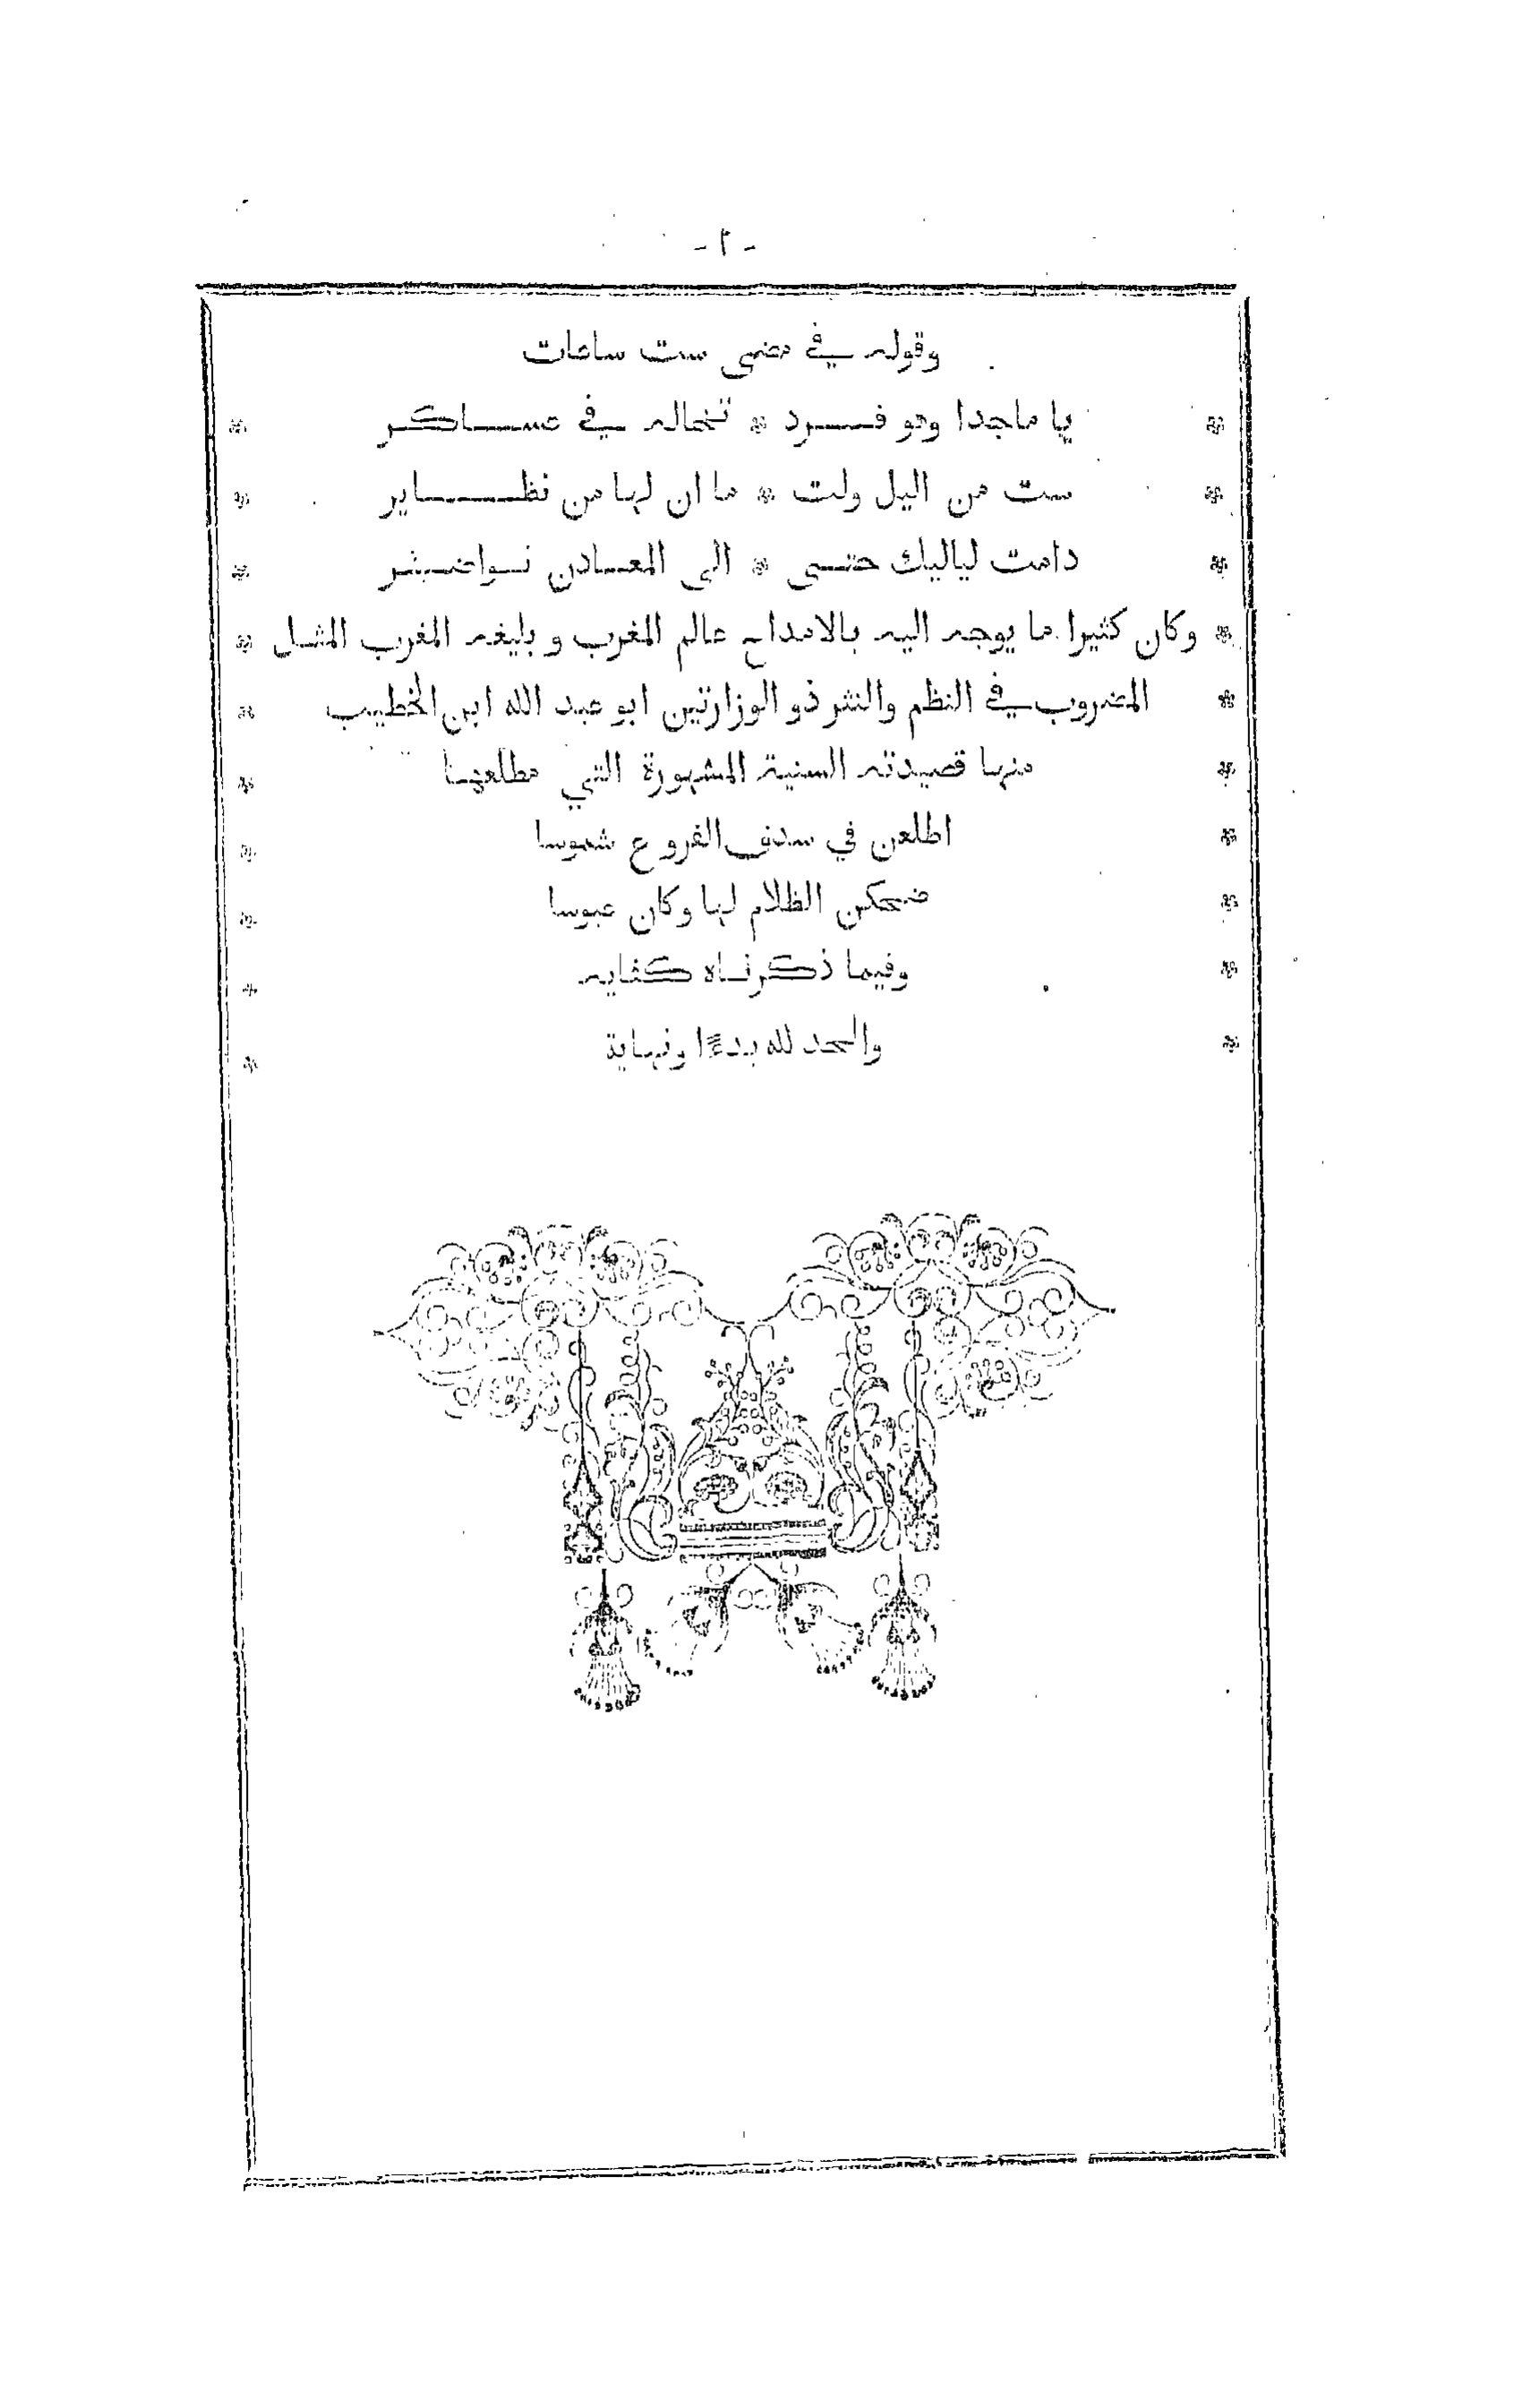 - ٢ -
وقوله في مضى ست ساعات
* يا ماجدا وهو فرد * تخاله في عساكر *
* ست من اليل ولت * ما ان لها من نظاير *
* دامت لياليك حتى * الى المعادن نواضر *
* وكان كثيرا ما يوجه اليه بالامداح عالم المغرب وبليغه المغرب المثل *
* المضروب في النظم والنثر ذو الوزارتين ابو عبد الله ابن الخطيب *
* منها قصيدته السنية المشهورة التي مطلعها *
* اطلعن في سدف الفروع شموسا *
* ضحكن الظلام لها وكان عبوسا *
* وفيما ذكرناه كفايه *
* والحمد لله بدءا ونهاية *